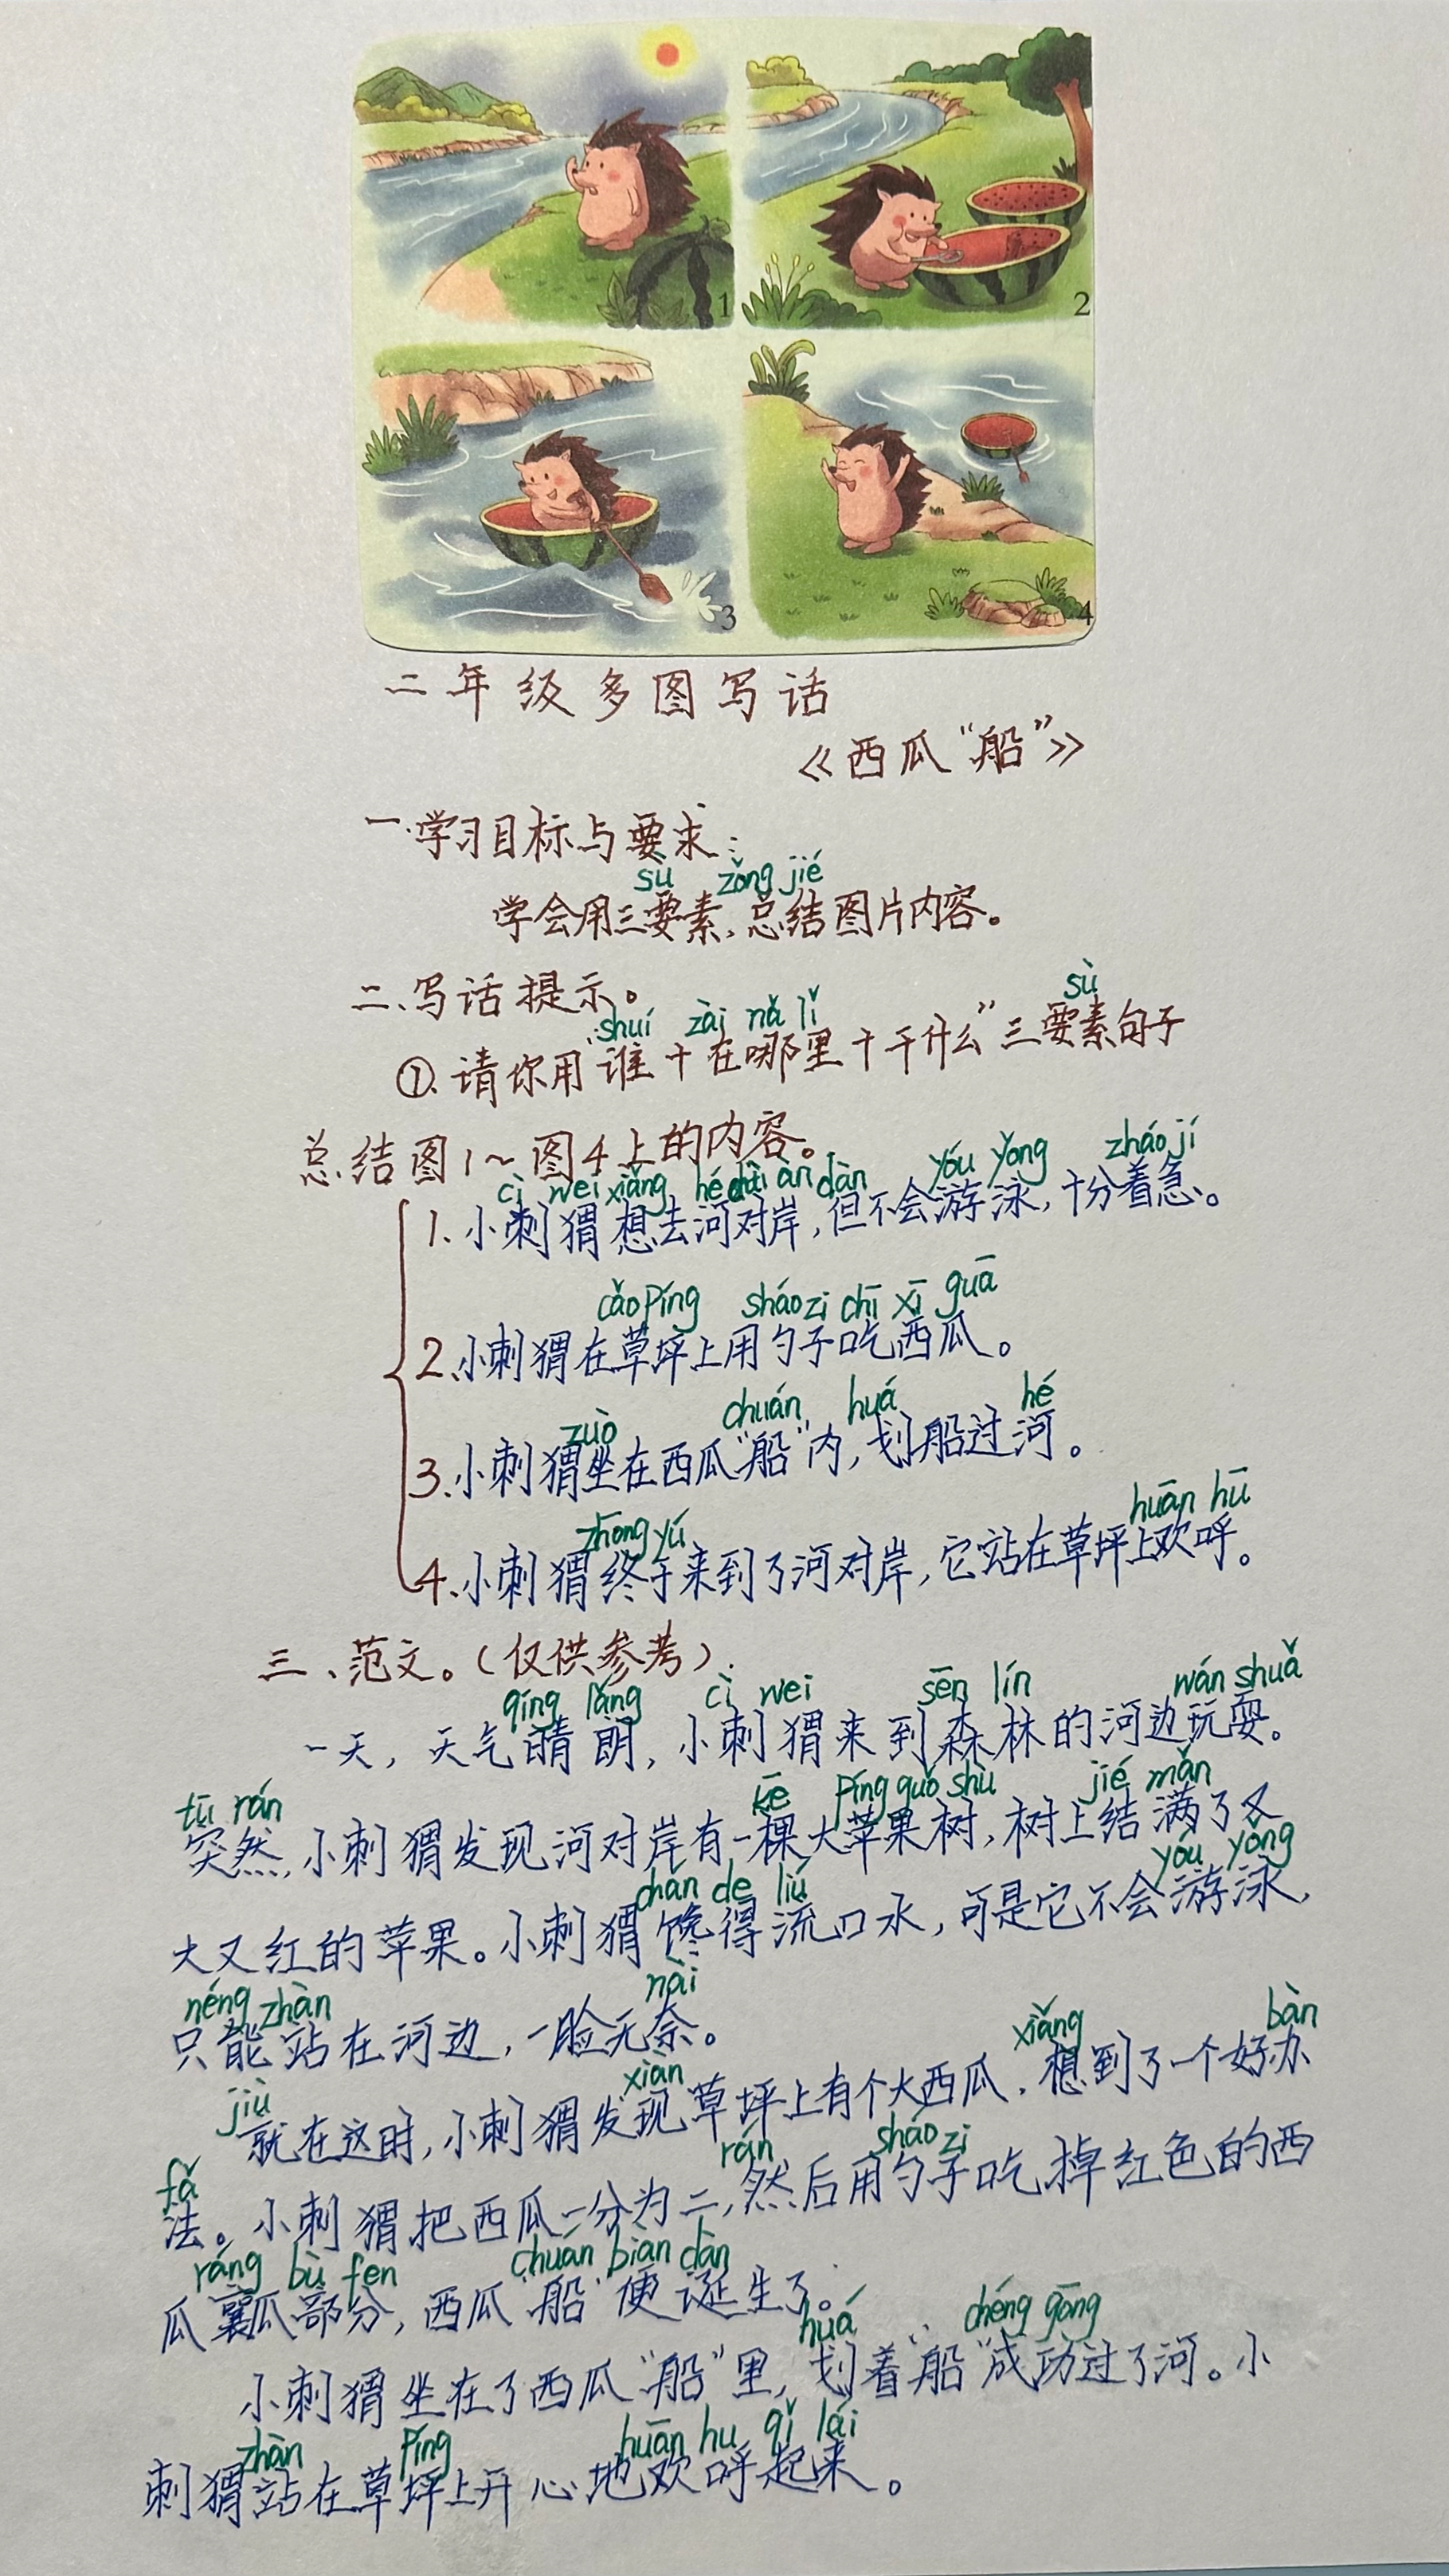 1
2
3
4
二年级多图写话
《西瓜“船”》
一.学习目标与要求:
sù zǒng jié
学会用三要素,总结图片内容。
二、写话提示。
shuí zài nǎ lǐ sù
①.请你用“谁+在哪里+干什么”三要素句子
总结图1~图4上的内容。
cì wei xiǎng hé duì àn dàn yóu yǒng zháo jí
1、小刺猬想去河对岸,但不会游泳,十分着急。
cǎo píng sháo zi chī xī guā
2、小刺猬在草坪上用勺子吃西瓜。
zuò chuán huá hé
3、小刺猬坐在西瓜“船”内,划船过河。
zhōng yú huān hū
4、小刺猬终于来到了河对岸,它站在草坪上欢呼。
三、范文。(仅供参考).
qíng lǎng cì wei sēn lín wán shuǎ
一天,天气晴朗,小刺猬来到森林的河边玩耍。
tū rán kē píng guǒ shù jié mǎn
突然,小刺猬发现河对岸有一棵大苹果树,树上结满了又
chán de liú yóu yǒng
大又红的苹果。小刺猬馋得流口水,可是它不会游泳,
néng zhàn nài
只能站在河边,一脸无奈。
jiù xiàn xiǎng bàn
就在这时,小刺猬发现草坪上有个大西瓜,想到了一个好办
fǎ rán sháo zi
法。小刺猬把西瓜一分为二,然后用勺子吃掉红色的西
ráng bù fen chuán biàn dàn
瓜瓤部分,西瓜“船”便诞生了。
huá chéng gōng
小刺猬坐在了西瓜“船”里,划着“船”成功过了河。小
zhàn píng huān hu qǐ lái
刺猬站在草坪上开心地欢呼起来。